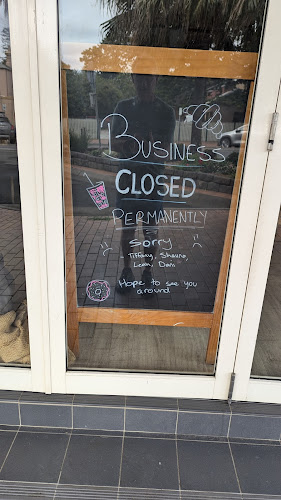 Business
CLOSED
PERMANENTLY
Sorry
- Tiffany, Shauna,
Leon, Dom
Hope to see you
around